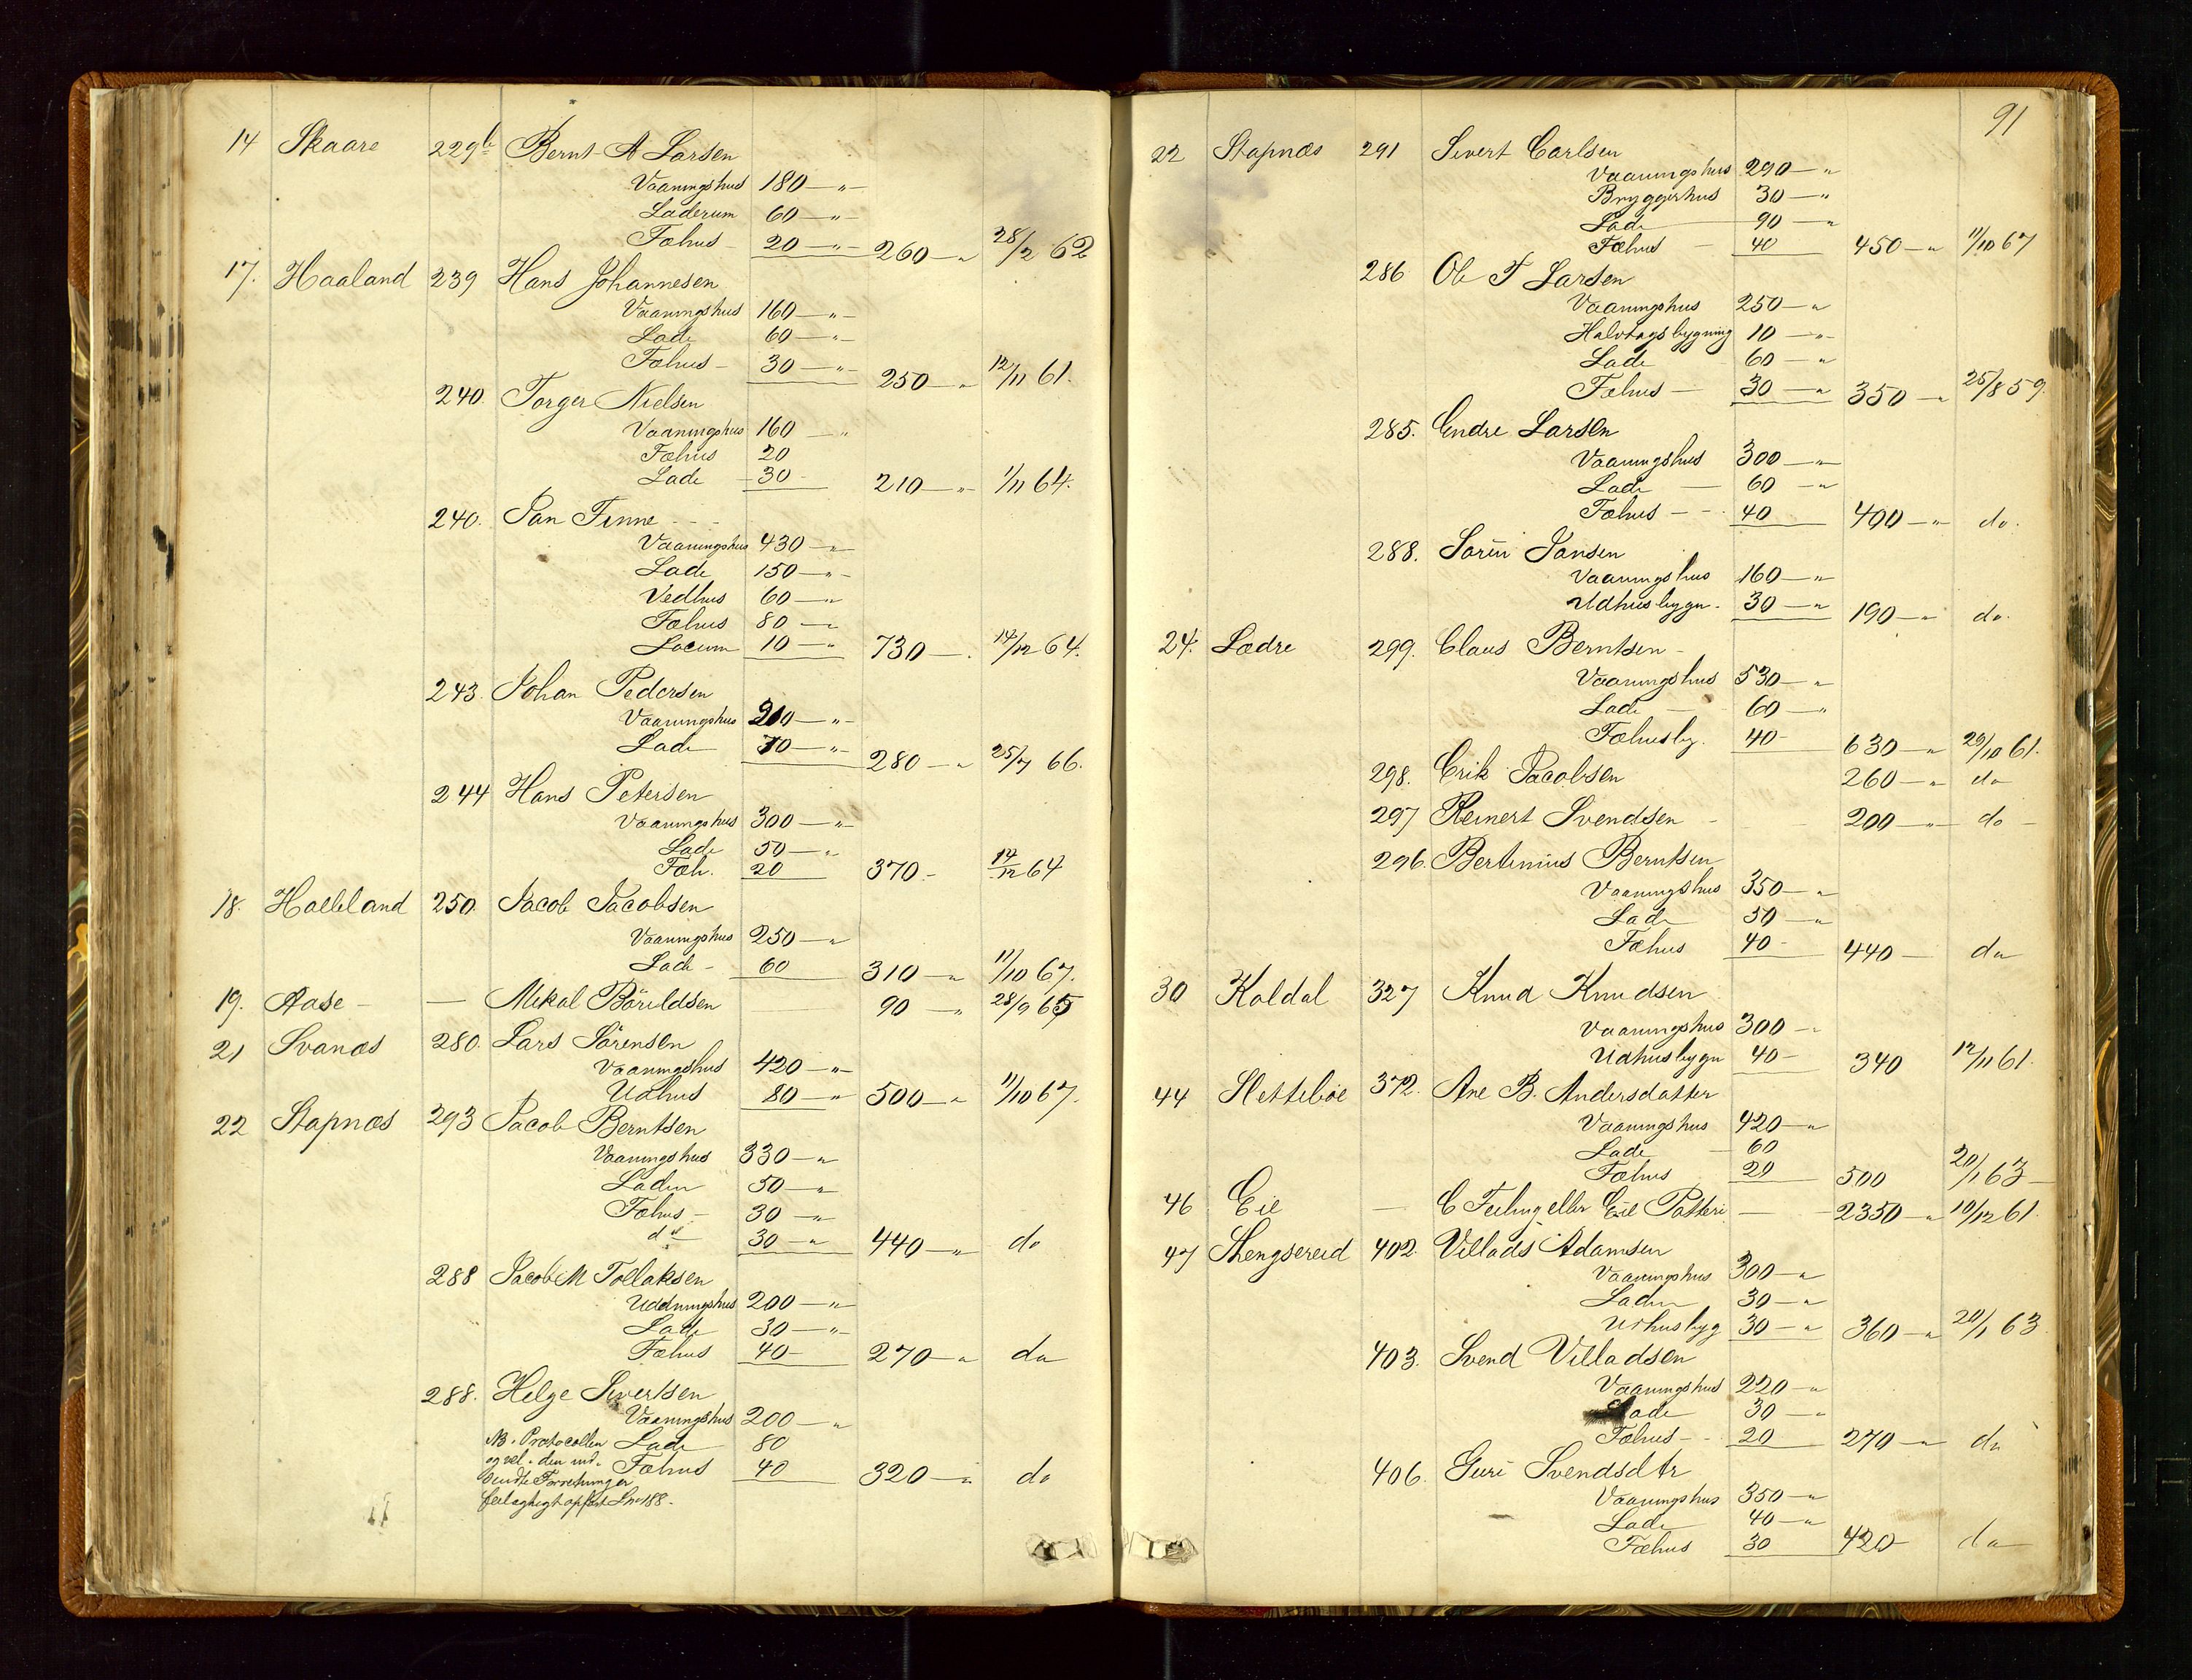 14 Skaare 229b Bernt A Larsen
Vaaningshus 180 — „ —
Laderum 60 — „ —
Fæhus — 20 — „ — 260 — „ 28/2 62
17. Haaland 239 Hans Johannesen
Vaaningshus 160 — „ —
Lade 60 — „ —
Fæhus — 30 — „ — 250 — „ 12/11 61.
240. Torger Nielsen
Vaaningshus 160 — „
Fæhus 20
Lade — 30 - 210 — „ — 1/11 64.
240. Jan Finne - - -
Vaaningshus 430 — „
Lade 150 — „ —
Vedhus 60 — „
Fæhus 80 — „
Locum 10 — „ 730 — . 14/12 64.
243. Johan Pedersen
Vaaningshus 210 — „ —
Lade 70 — „ — 280 — „ 25/7 66.
244 Hans Petersen
Vaaningshus 300 — „ —
Lade 50 — „
Fæh. 20 370 - 14/12 64
18. Helleland 250. Jacob Jacobsen
Vaaningshus 250 — „
Lade - 60 310 — „ 11/10 67.
19. Aase — — Mikal Bårildsen 90 — „ 28/9 65
21 Svanæs 280. Lars Sörensen
Vaaningshus 420 — „ —
Udhus 80 — „ 500 — „ 11/10 67.
22 Stapnæs 293 Jacob Berntsen
Vaaningshus 330 — „
Laden 50 — „
Fæhus — 30 — „
do 30 — „ 440 — „ do
288 Jacob M Tollaksen
Vaaningshus 200 — „ —
Lade 30 — „ —
Fæhus 40 — 270 — „ do
288. Helge Sivertsen
Vaaningshus 200 — „
NB. Protocollen Lade 80
og vel. den ind- Fæhus 40 320 — „ do
sendte Forretning er
feilagtigt opført Lno 188.
91
22 Stapnæs 291 Sivert Carlsen
Vaaningshus 290 — „
Bryggerhus 30 — „
Lade 90 — „
Fæhus — 40 450 — „ 11/10 67
286 Ole T Larsen
Vaaningshus 250 — „
Halvtagsbygning 10 — „ —
Lade 60 — „
Fæhus — 30 — „ 350 — „ 25/8 59.
285. Endre Larsen
Vaaningshus 300 — „ —
Lade — 60 — „
Fæhus - - 40 400 — „ do.
288. Sörin Jansen
Vaaningshus 160 — „
Udhusbygn. 30 — „ 190 — „ do.
24. Lædre 299. Claus Berntsen -
Vaaningshus 530 — „
Lade — 60 — „
Fæhusby. 40 - 630 — „ 29/10 61.
298. Erik Jacobsen 260 — „ do
297 Reinert Svendsen - 200 — „ — do -
296. Bertinius Berntsen
Vaaningshus 350 — „
Lade 50 — „
Fæhus 40 - 440 — do
30 Koldal 327 Knud Knudsen
Vaaningshus 300 — „
Udhusbygn 40 — 340 12/11 61.
44 Sletteböe 372. Ane B. Andersdatter
Vaaningshus 420 — „
Lade — 60
Fæhus 20 500 20/1 63 —
46 Eie — C Feyling eller Eie Potteri — — 2350 — „ 10/12 61.
47 Skengsereid 402. Villads Adamsen
Vaaningshus 300 — „
Laden 30 — „
Udhusbyg 30 — „ 360 — „ 20/1 63.
403. Svend Villadsen
Vaaningshus 220 — „
Lade 30 — „
Fæhus - - 20 270 — „ do
406. Guri Svendsdtr
Vaaningshus 350 — „
Lade 40 — „
Fæhus 30 420 — do